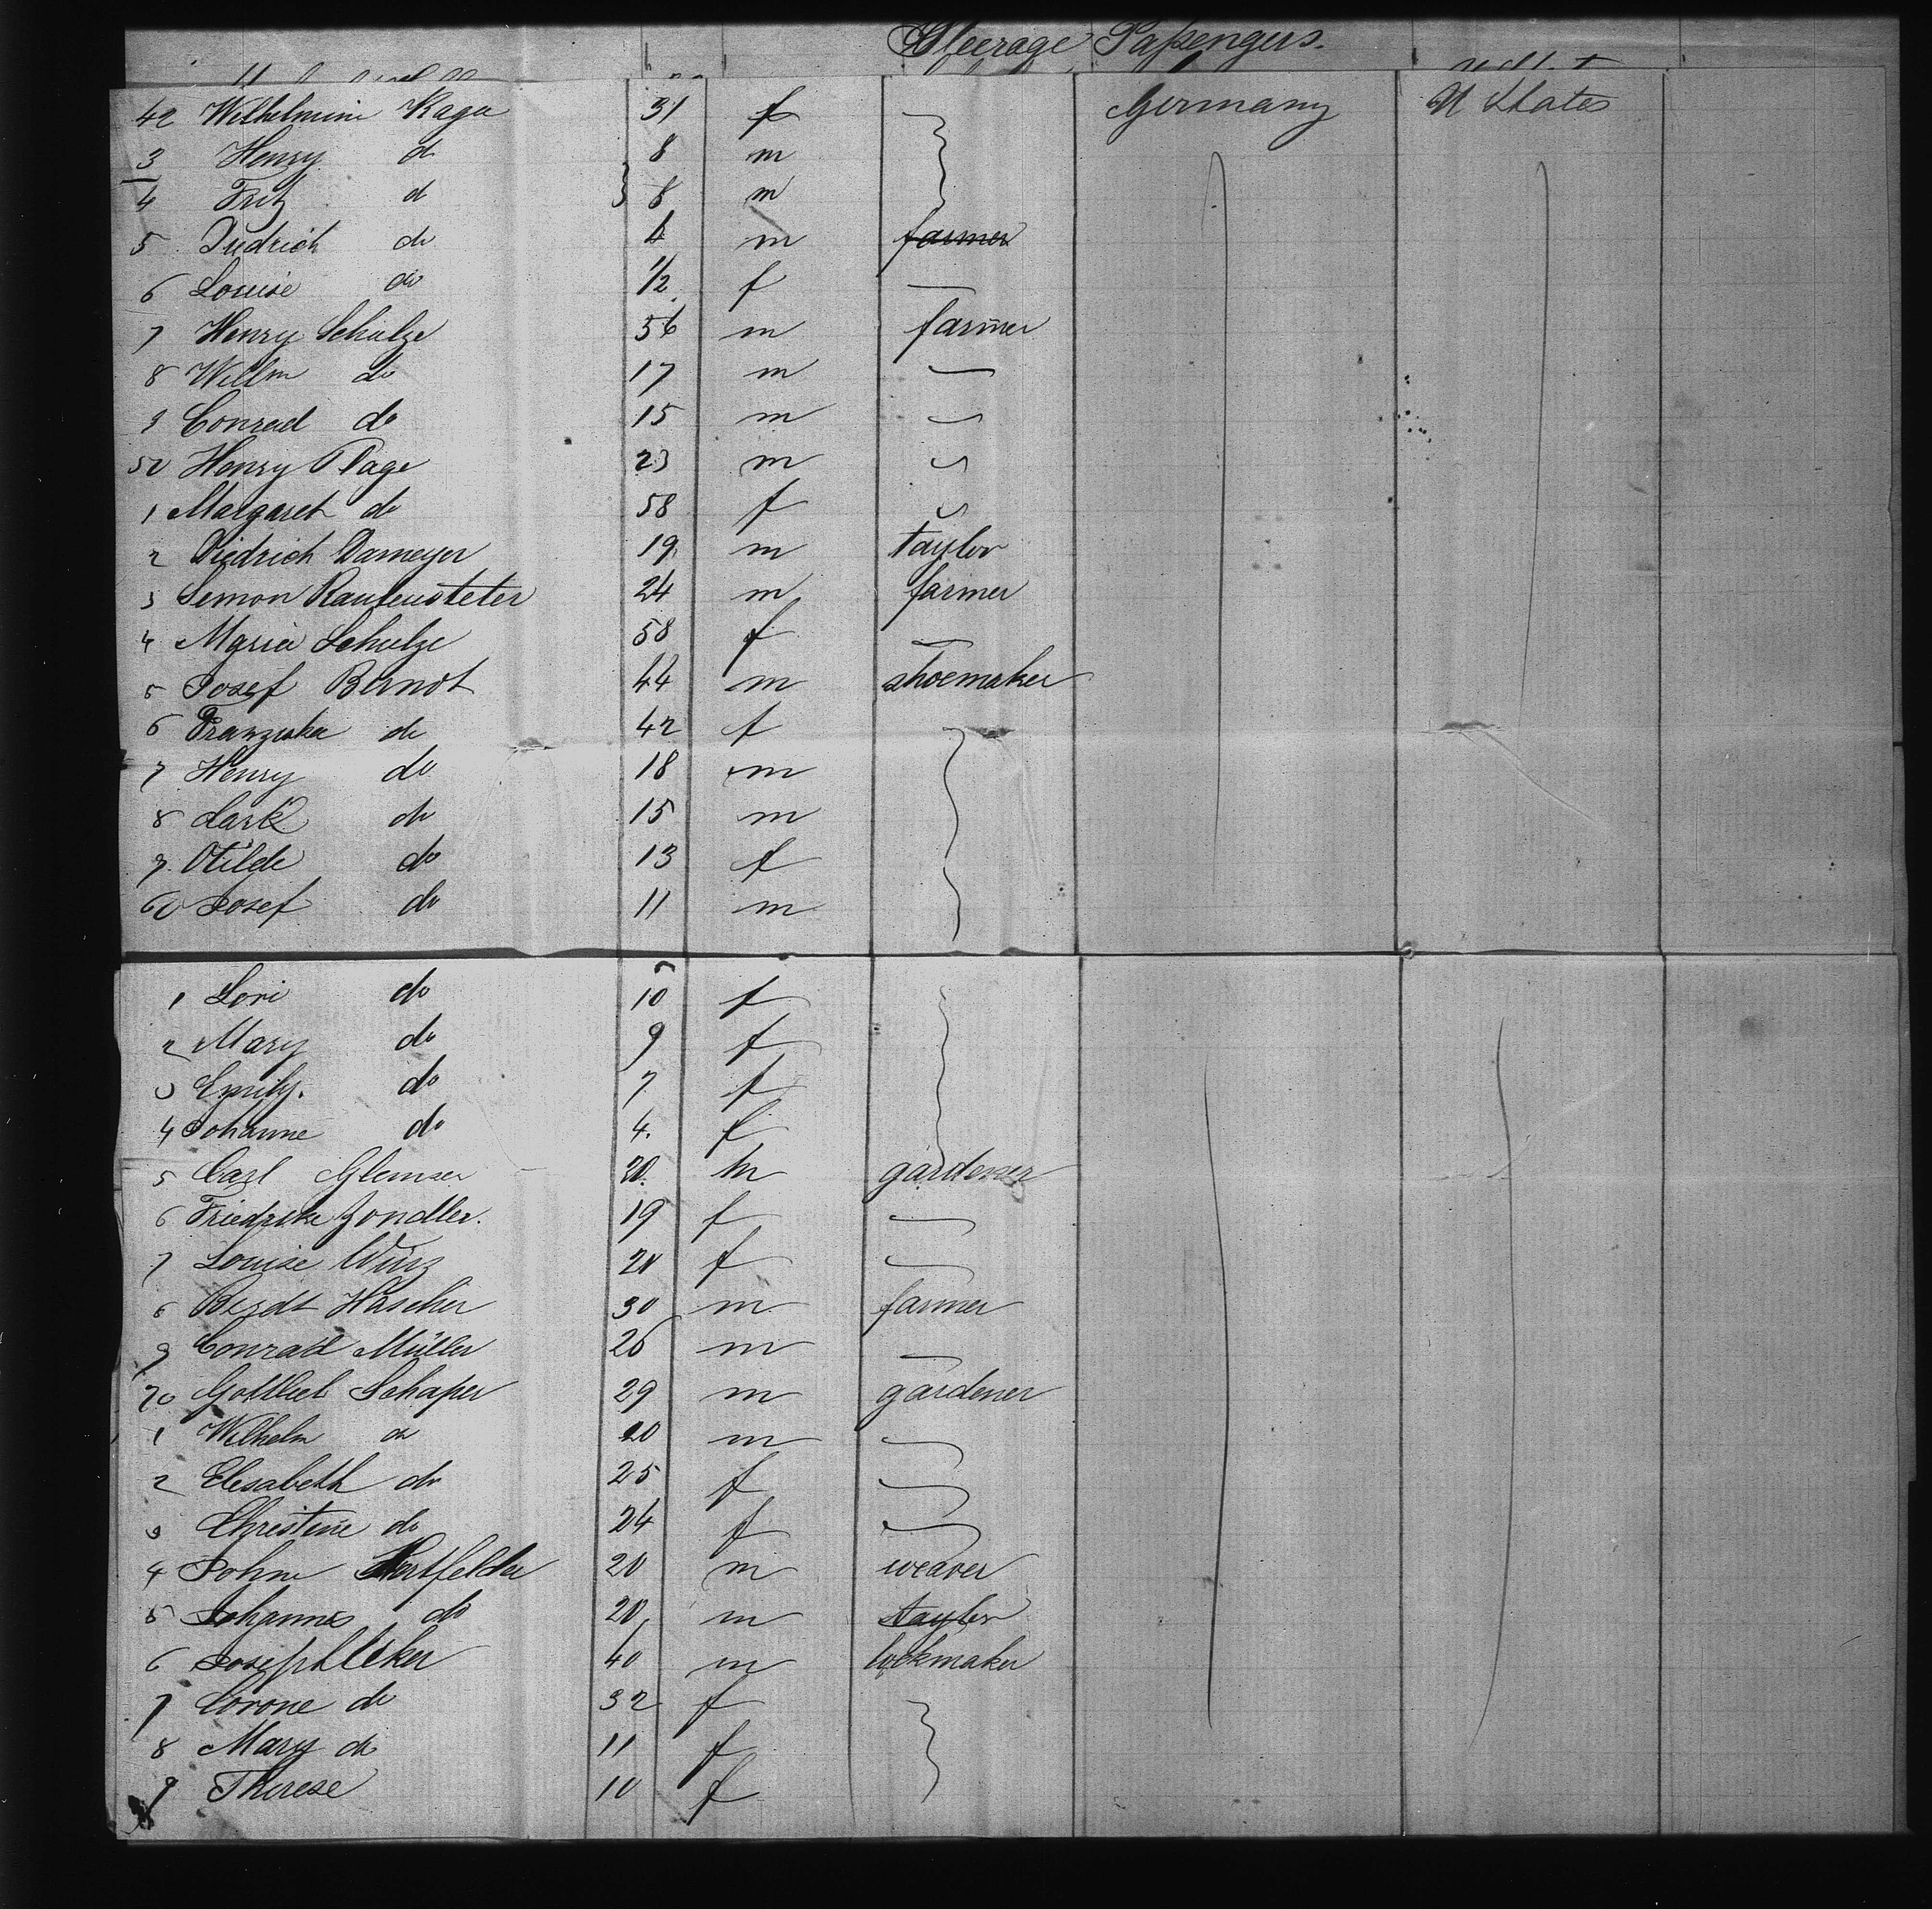 Steerage Passengers.
42 Wilhelmine Kage 31 f Germany U States
3 Henry do 8 m
4 Fritz do 8 m
5 Diedrich do 4 m farmer
6 Louise do 1/2 f
7 Henry Schulze 56 m farmer
8 Willm do 17 m
9 Conrad do 15 m
50 Henry Plage 23 m
1 Margaret do 58 f
2 Diedrich Darmeyer 19 m taylor
3 Semon Rautensteter 24 m farmer
4 Maria Schulze 58 f
5 Josef Berndt 44 m shoemaker
6 Franziska do 42 f
7 Henry do 18 m
8 do 15 m
9 Otilde do 13 f
60 Josef do 11 m
1 Lori do 10 f
2 Mary do 9 f
3 Emily. do 7 f
4 Johanne do 4. f
5 Carl Glemser 20. m gardener
6 Friedrike Zondler. 19 f
7 Louise Würz f
8 Berdt Häscher 30 m farmer
9 Conrad Müller 26 m
70 Gottlieb Schaper 29 m gardener
1 Wilhelm do 20 m
2 Elisabeth do 25 f
3 Christine do 24 f
4 John 20 m weaver
5 Johannes do 20 m taylor
6 Joseph 40 m lockmaker
7 Corone do 32 f
8 Mary do 11 f
9 Therese 10 f